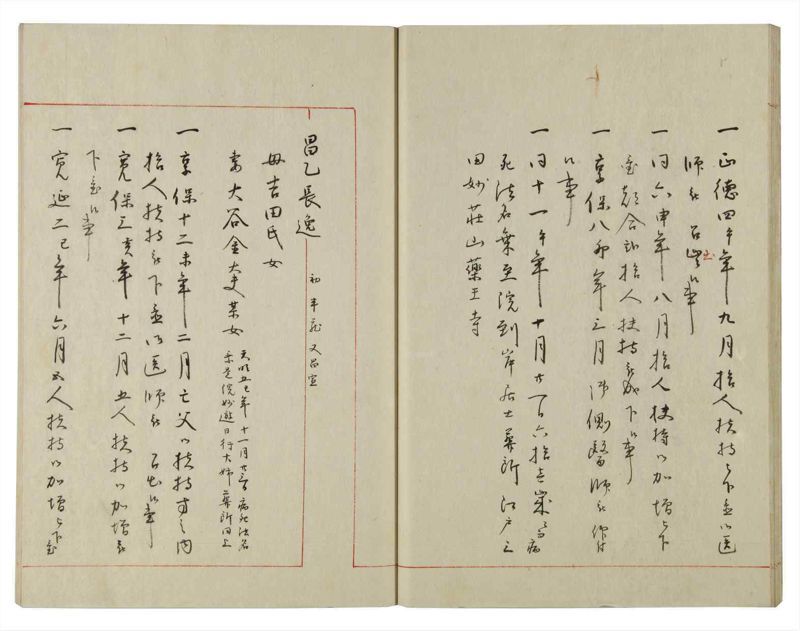 一正徳四午年九月拾人扶持被下置御医
師被召出候事
一同六申年八月拾人扶持御加増被下
置都合弐拾人扶持被成下候事
一享保八卯年三月御側醫師被仰付
候事
一同十一午年十月廿一日六拾壱歳ニ而病
死法名 至院到岸居士葬所江戸三
田妙荘山薬王寺
昌乙長逸 初 又昌宣
母吉田氏女
妻大谷金大夫某女 天明五巳年十一月廿三日病死法名
院妙遊日行大姉葬所同上
一享保十二未年二月亡父御扶持方之内
拾人扶持被下置御医師被召出候事
一寛保三亥年十二月五人扶持御加増被
下置候事
一寛延二巳年六月五人扶持御加増被下置